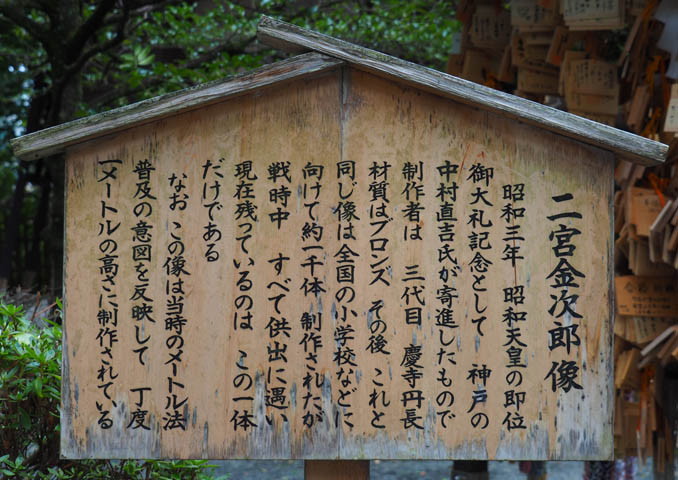 二宮金次郎像
昭和三年　昭和天皇の即位
御大礼記念として　神戸の
中村直吉氏が寄進したもので
制作者は　三代目　慶寺丹長
材質はブロンズ　その後　これと
同じ像は全国の小学校などに
向けて約一千体　制作されたが
戦時中　すべて供出に遇い
現在残っているのは　この一体
だけである
なお　この像は当時のメートル法
普及の意図を反映して　丁度
一メートルの高さに制作されている